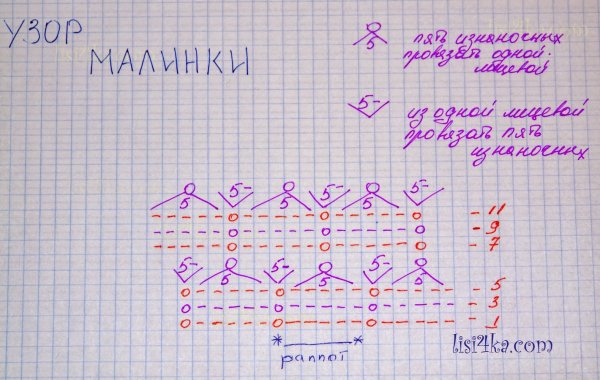 УЗОР
МАЛИНКИ
5 пять изнаночных
провязать одной
лицевой
5- из одной лицевой
провязать пять
изнаночных
5 5- 5 5- 5 5-
- 11
- 9
- 7
5- 5 5- 5 5- 5
- 5
- 3
- 1
* *
раппот
lisi4ka.com